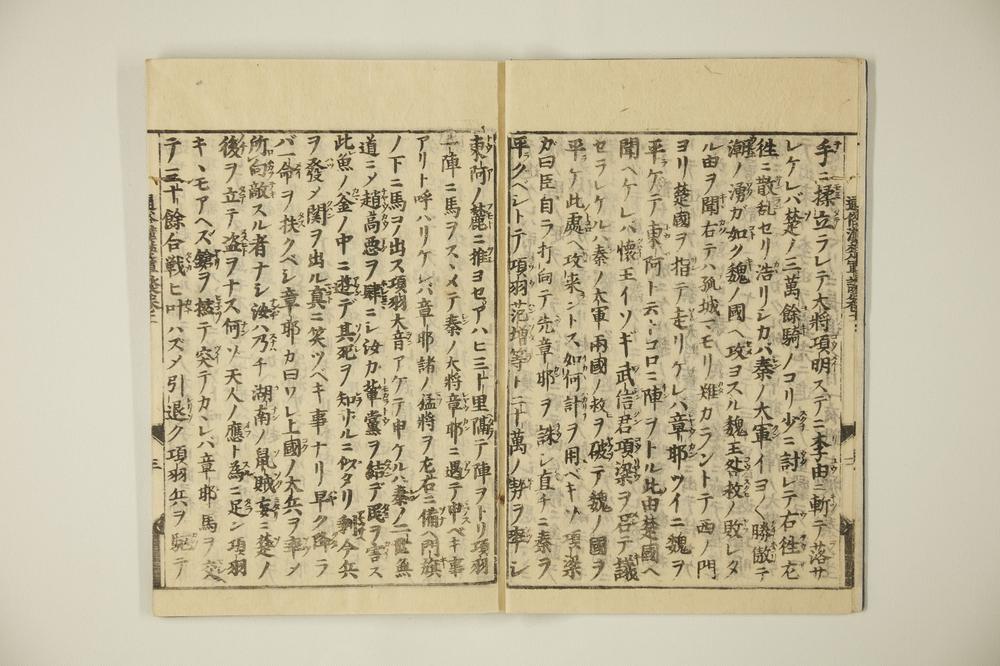 手ニ揉立ラレテ大將項明スデニ李由ニ斬テ落サ
レケレバ楚ノ三萬餘騎ノコリ少ニ討レテ右徃左
徃ニ散乱セリ浩リシカバ秦ノ大軍イヨ〱勝傲テ
潮ノ湧カ如ク魏ノ國ヘ攻ヨスル魏王咎救ノ敗レタ
ル由ヲ聞右テハ孤城マモリ難カラントテ西ノ門
ヨリ楚國ヲ指テ走リケレバ章邯ツイニ魏ヲ
平ケテ東阿ト云トコロニ陣ヲトル此由楚國ヘ
聞ヘケレバ懷王イソギ武信君項梁ヲ召テ議
セラレケルハ秦ノ大軍兩國ノ救ヲ破テ魏ノ國ヲ
平ケ此處ヘ攻來ントス如何計ヲ用ベキソ項梁
カ曰臣自ラ打向テ先章邯ヲ誅シ直チニ秦ヲ
平クベシトテ項羽范增等ト二十萬ノ勢ヲ率シ
東阿ノ麓ニ推ヨセアハヒ三十里隔テ陣ヲトリ項羽
一陣ニ馬ヲスヽメテ秦ノ大將章邯ニ遇テ申ベキ事
アリト呼ハリケレバ章邯諸ノ猛將ヲ左右ニ備ヘ門旗
ノ下ニ馬コノ出ス項羽大音アゲテ申ケルハ秦ノ二世無
道ニメ趙高惡ヲ肆ニシ汝カ輩黨ヲ結デ民ヲ害ス
此魚ノ釜ノ中ニ遊デ其死ヲ知ザルニ似タリ今兵
ヲ發メ関ヲ出ル真ニ笑ツベキ事ナリ早ク降ラ
バ命ヲ扶クベシ章邯カ曰ワレ上國ノ大兵ヲ率メ
所向敵スル者ナシ汝ハ乃チ湖南ノ鼠賊妄ニ楚ノ
後ヲ立テ盗ヲナス何ソ天人ノ應ト為ニ足ン項羽
キヽモアヘズ鎗ヲ撚テ突テカヽレバ章邯馬ヲ交
テ三十餘合戰ヒ叶ハズメ引退ク項羽兵ヲ駈テ